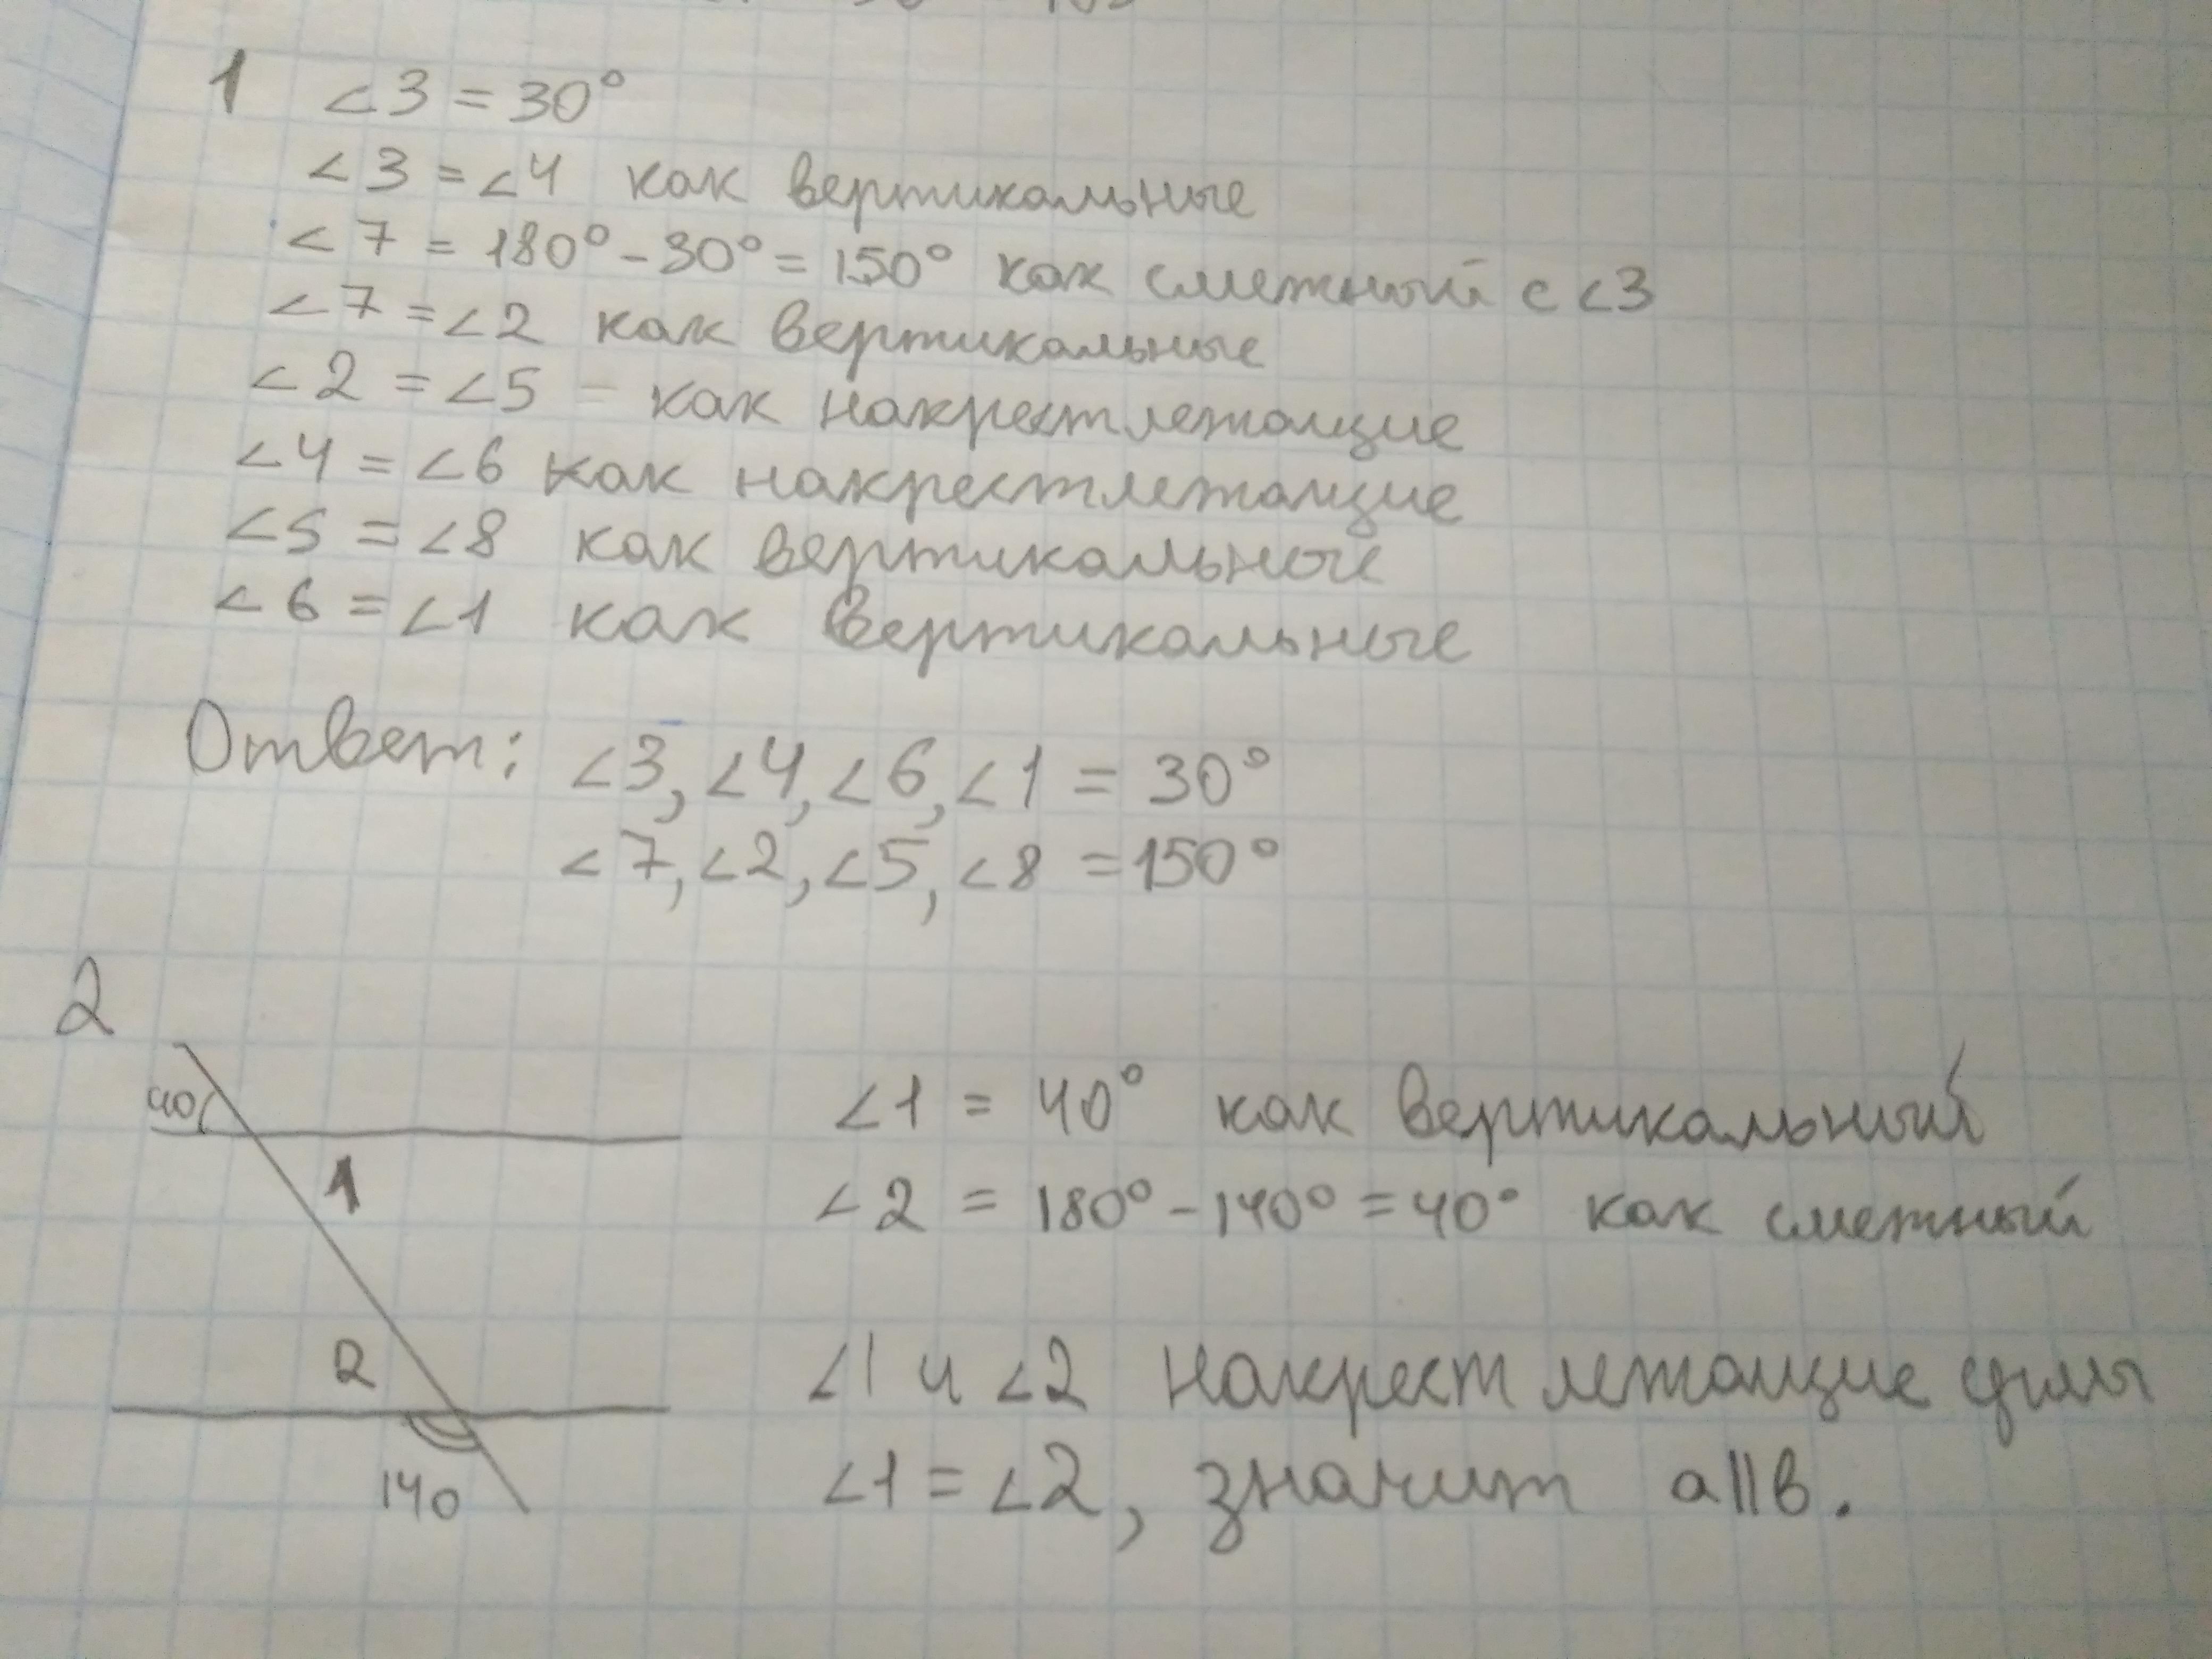 1 ∠3 = 30°
∠3 = ∠4 как вертикальные
∠7 = 180° - 30° = 150° как смежный с ∠3
∠7 = ∠2 как вертикальные
∠2 = ∠5 - как накрестлежащие
∠4 = ∠6 как накрестлежащие
∠5 = ∠8 как вертикальные
∠6 = ∠1 как вертикальные
Ответ: ∠3, ∠4, ∠6, ∠1 = 30°
∠7, ∠2, ∠5, ∠8 = 150°
2
40
1
2
140
∠1 = 40° как вертикальный
∠2 = 180° - 140° = 40° как смежный
∠1 и ∠2 накрест лежащие
∠1 = ∠2, значит a||b.